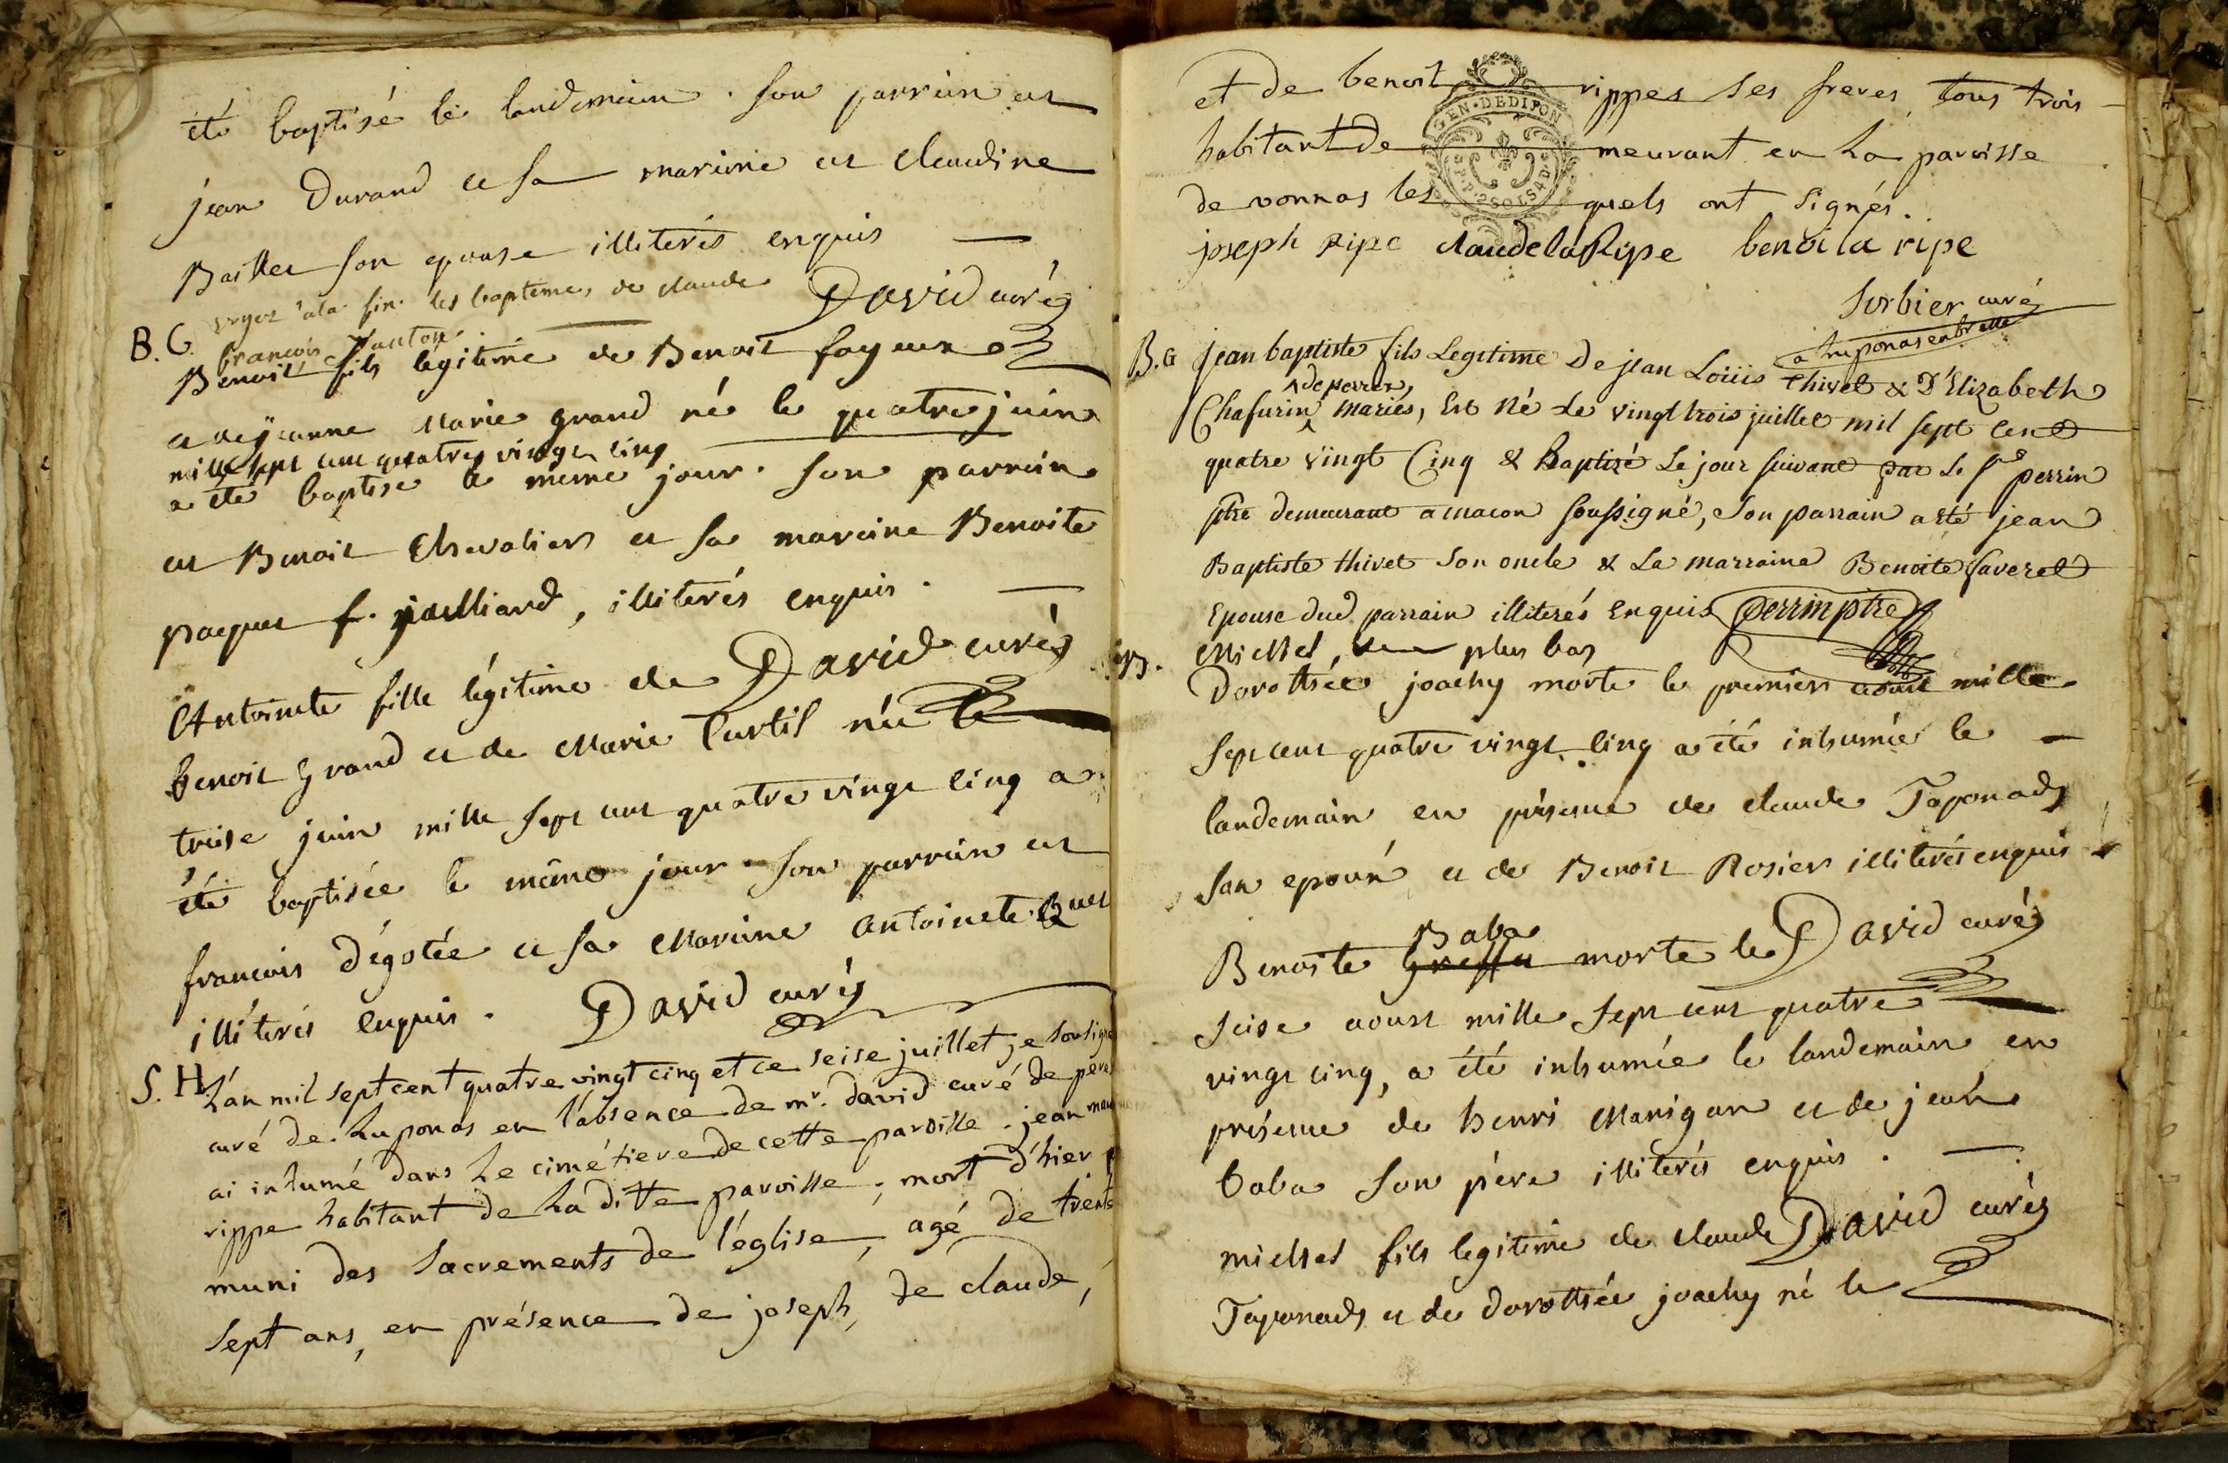 été baptisé le landemain. son parrain est
jean Durand et sa maraine est Claudine
Baillet son epouse illiterés enquis
voyez à la fin les baptemes de claude
David curé
françois
B. G.
Benoit fils legitime de Benoit fayeux
et de jeanne Marie grand né le quatre juin
mille sept cent quatre vingt cinq
a été baptisé le meme jour. son parrain
est Benoit Chevalier et sa maraine Benoite
paquet f. juilliard, illiterés enquis.
David curé
Antoinete fille légitime de
benoit grand et de Marie Curtil née le
treise juin mille sept cent quatre vingt cinq a
été baptisée le même jour. son parrain est
francois dégotée et sa Maraine Antoinete
illiterés enquis. David curé
S. H.
L'an mil sept cent quatre vingt cinq et ce seise juillet je soussigné
curé de Luponas en l'absence de mr. david curé de
ai inhumé dans Le cimétiere de cette paroisse. jean
rippe habitant de La ditte paroisse, mort d'hier
muni des Sacrements de l'église, agé de trente
sept ans, en présence de joseph, de claude,
et de benoit rippes ses freres, tous trois
GEN. DE DIJON
habitant demeurant en La paroisse
de vonnas lesquels ont Signés.
joseph ripe claude la Ripe benoi la ripe
Sorbier curé
a luponas en bresse
B. G
jean baptiste fils Legitime De jean Loüis thivet & D'Elizabeth
de perrex
Chafurin mariés, Est Né Le vingt trois juillet mil sept cent
quatre vingt Cinq & Baptizé Le jour suivant par Le sr perrin
ptre demeurant a macon soussigné, son parrain a été jean
Baptiste thivet son oncle & La marraine Benoite faveret
Epouse dud. parrain illiterés Enquis perrin ptre
Michel, plus bas
Dorothée joachy morte le premier aoust mille
sept cent quatre vingt cinq a été inhumée le
landemain en présence de claude Taponad
son epoux et de Benoit Rosier illiterés enquis
David curé
Baba
Benoite morte le
seise aoust mille sept cent quatre
vingt cinq, a été inhumée le landemain en
présence de henri Marigan et de jean
baba son pére illiterés enquis.
David curé
michel fils legitime de claude
Taponad et de dorothée joachy né le